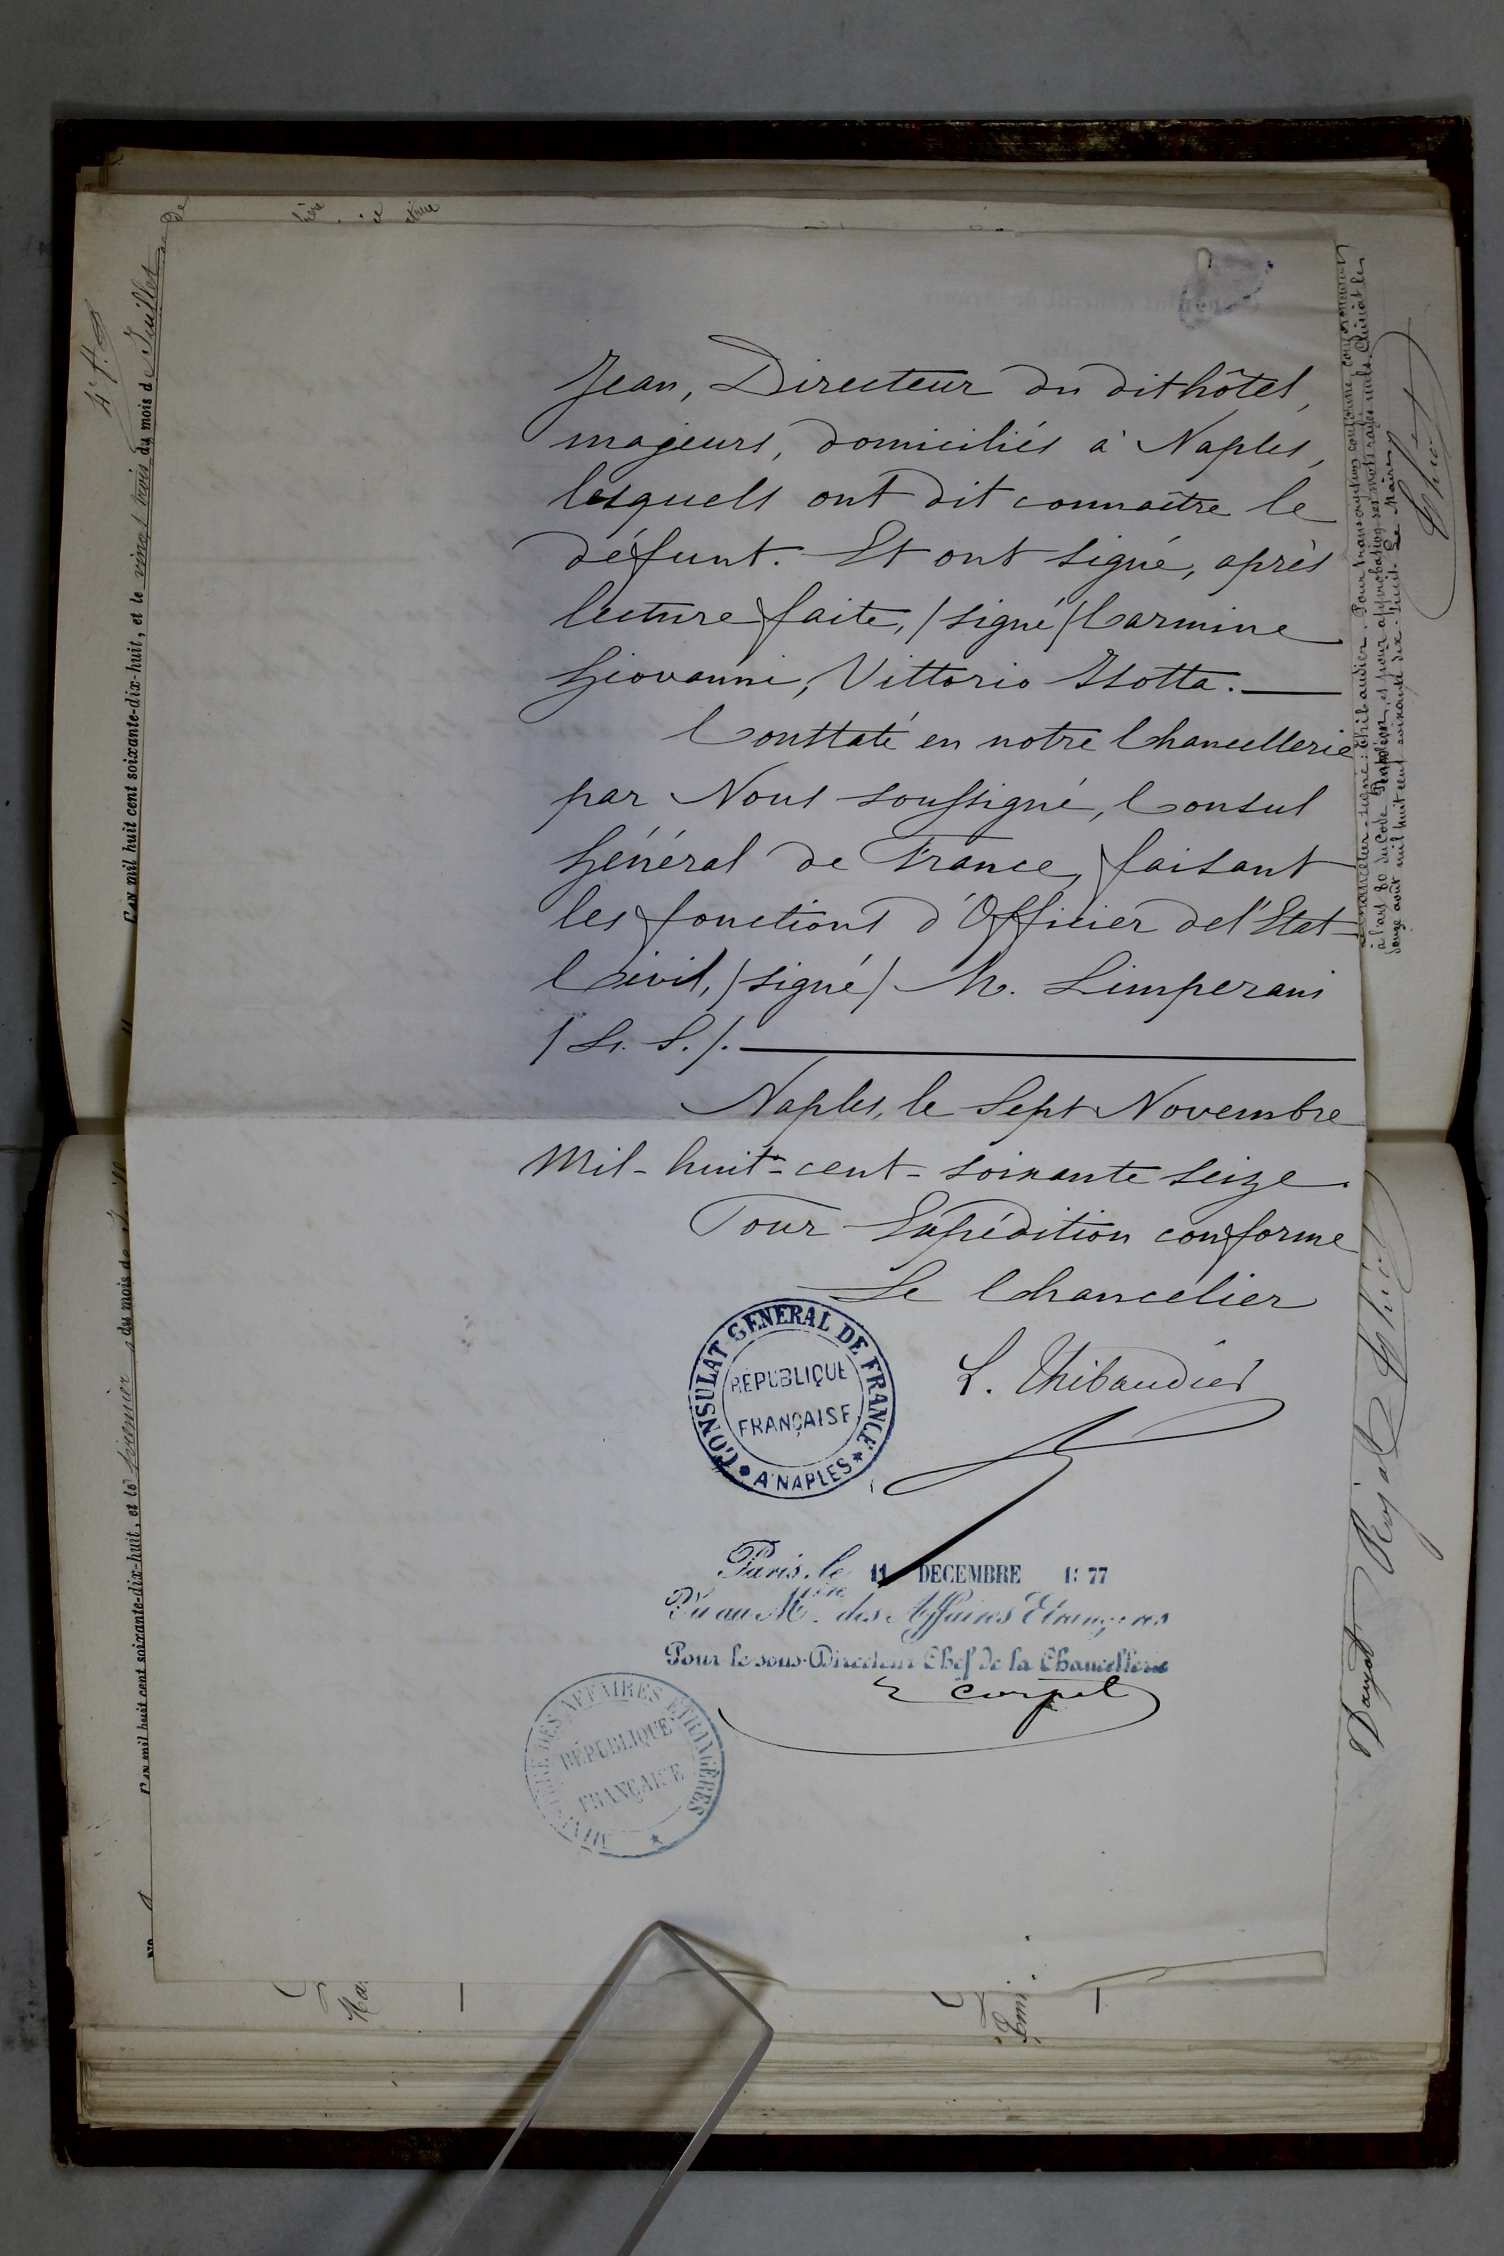 Jean, Directeur du dit hôtel,
majeurs, domiciliés à Naples,
lesquels ont dit connaître le
défunt. Et ont signé, après
lecture faite, /signé/ Carmine
Giovanni, Vittorio Isotta.
Constaté en notre Chancellerie
par Nous soussigné, Consul
Général de France, faisant
les fonctions d'Officier de l'Etat-
Civil, /signé/ M. Limperani
/L. S./.
Naples, le Sept Novembre
Mil-huit-cent-soixante seize.
Pour Expédition conforme
Le Chancelier
L. Thibaudier
CONSULAT GENERAL DE FRANCE
RÉPUBLIQUE
FRANÇAISE
A NAPLES
Paris, le 11 DECEMBRE 1877
Vu au Mtère des Affaires Etrangères
Pour le sous-Directeur Chef de la Chancellerie
MINISTÈRE DES AFFAIRES ETRANGÈRES
RÉPUBLIQUE
FRANÇAISE
L'AN mil huit cent soixante-dix-huit, et le vingt trois du mois de Juillet
L'AN mil huit cent soixante-dix-huit, et le premier du mois de
chancelier. signé: Thibaudier. Pour transcription conforme, conformément
à l'art 80 du Code Napoléon, et pour approbation
douze août mil huit cent soixante dix-huit. Le Maire